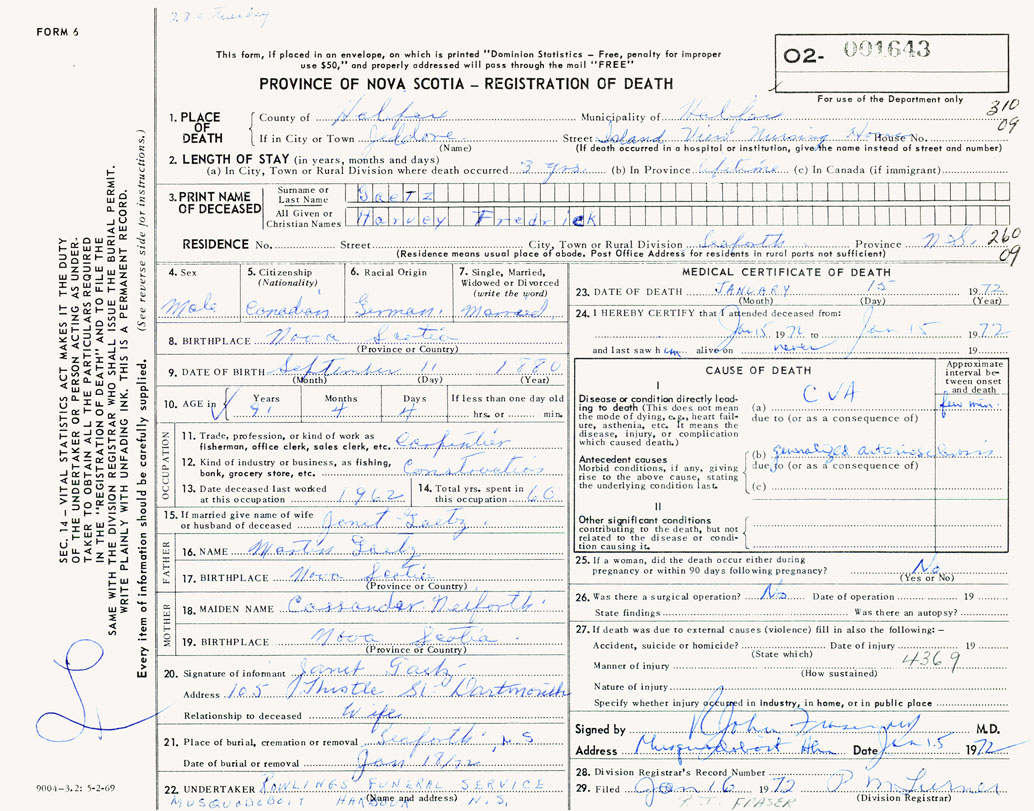 230 Tuesday
FORM 6
This form, if placed in an envelope, on which is printed "Dominion Statistics – Free, penalty for improper
use $50," and properly addressed will pass through the mail "FREE"
PROVINCE OF NOVA SCOTIA – REGISTRATION OF DEATH
O2- 001643
For use of the Department only
310
09
1. PLACE OF DEATH
County of Halifax Municipality of Halifax
If in City or Town Jeddore Street Island View Nursing Home House No.
(Name) (If death occurred in a hospital or institution, give the name instead of street and number)
2. LENGTH OF STAY (in years, months and days)
(a) In City, Town or Rural Division where death occurred 3 yrs. (b) In Province Lifetime (c) In Canada (if immigrant)
3. PRINT NAME OF DECEASED
Surname or Last Name Gaetz
All Given or Christian Names Harvey Fredrick
RESIDENCE No. Street City, Town or Rural Division Seaforth Province N.S.
260
09
(Residence means usual place of abode. Post Office Address for residents in rural parts not sufficient)
4. Sex
Male
5. Citizenship
(Nationality)
Canadian
6. Racial Origin
German
7. Single, Married,
Widowed or Divorced
(write the word)
Married
8. BIRTHPLACE Nova Scotia
(Province or Country)
9. DATE OF BIRTH September 11 1880
(Month) (Day) (Year)
10. AGE in Years Months Days If less than one day old
91 4 4 hrs. or min.
OCCUPATION
11. Trade, profession, or kind of work as
fisherman, office clerk, sales clerk, etc. Carpenter
12. Kind of industry or business, as fishing,
bank, grocery store, etc. Construction
13. Date deceased last worked
at this occupation 1962
14. Total yrs. spent in
this occupation 60
15. If married give name of wife
or husband of deceased Janet Gaetz
FATHER
16. NAME Martin Gaetz
17. BIRTHPLACE Nova Scotia
(Province or Country)
MOTHER
18. MAIDEN NAME Cassander
19. BIRTHPLACE Nova Scotia
(Province or Country)
20. Signature of informant Janet Gaetz
Address 105 Thistle St Dartmouth
Relationship to deceased Wife
21. Place of burial, cremation or removal Seaforth, N.S
Date of burial or removal Jan 18/72
22. UNDERTAKER ROWLINGS FUNERAL SERVICE
(Name and address)
MUSQUODOBOIT HARBOUR N.S.
MEDICAL CERTIFICATE OF DEATH
23. DATE OF DEATH JANUARY 15 1972
(Month) (Day) (Year)
24. I HEREBY CERTIFY that I attended deceased from:
Jan 15 1972 to Jan 15 1972
and last saw him alive on never 19
CAUSE OF DEATH
Approximate
interval be-
tween onset
and death
I
Disease or condition directly lead-
ing to death (This does not mean
the mode of dying, e.g., heart fail-
ure, asthenia, etc. It means the
disease, injury, or complication
which caused death.)
(a) CVA few min.
due to (or as a consequence of)
Antecedent causes
Morbid conditions, if any, giving
rise to the above cause, stating
the underlying condition last.
(b) generalized arteriosclerosis
due to (or as a consequence of)
(c)
II
Other significant conditions
contributing to the death, but not
related to the disease or condi-
tion causing it.
25. If a woman, did the death occur either during
pregnancy or within 90 days following pregnancy? No
(Yes or No)
26. Was there a surgical operation? No Date of operation 19
State findings Was there an autopsy?
27. If death was due to external causes (violence) fill in also the following: –
Accident, suicide or homicide? Date of injury 19
(State which)
Manner of injury 4369
(How sustained)
Nature of injury
Specify whether injury occurred in industry, in home, or in public place
Signed by R John Fraser M.D.
Address Musquodoboit Hbr Date Jan 15 1972
28. Division Registrar's Record Number
29. Filed Jan 16 1972 P M Turner
(Division Registrar)
R.J. FRASER
SEC. 14 – VITAL STATISTICS ACT MAKES IT THE DUTY
OF THE UNDERTAKER OR PERSON ACTING AS UNDER-
TAKER TO OBTAIN ALL THE PARTICULARS REQUIRED
IN THE "REGISTRATION OF DEATH" AND TO FILE THE
SAME WITH THE DIVISION REGISTRAR WHO SHALL ISSUE THE BURIAL PERMIT.
WRITE PLAINLY WITH UNFADING INK. THIS IS A PERMANENT RECORD.
Every item of information should be carefully supplied. (See reverse side for instructions.)
9004-3.2: 5-2-69